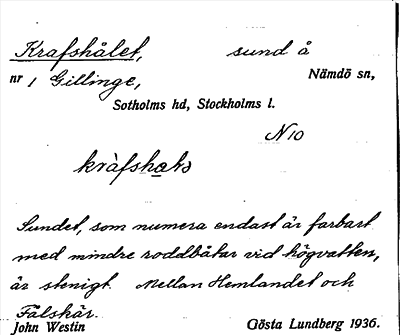 Krafshålet, sund å
nr 1 Gillinge, Nämdö sn,
Sotholms hd, Stockholms l.
N10
kràfshal̥s
Sundet, som numera endast är farbart
med mindre roddbåtar vid högvatten,
är stenigt. Mellan Hemlandet och
Fälskär.
John Westin Gösta Lundberg 1936.